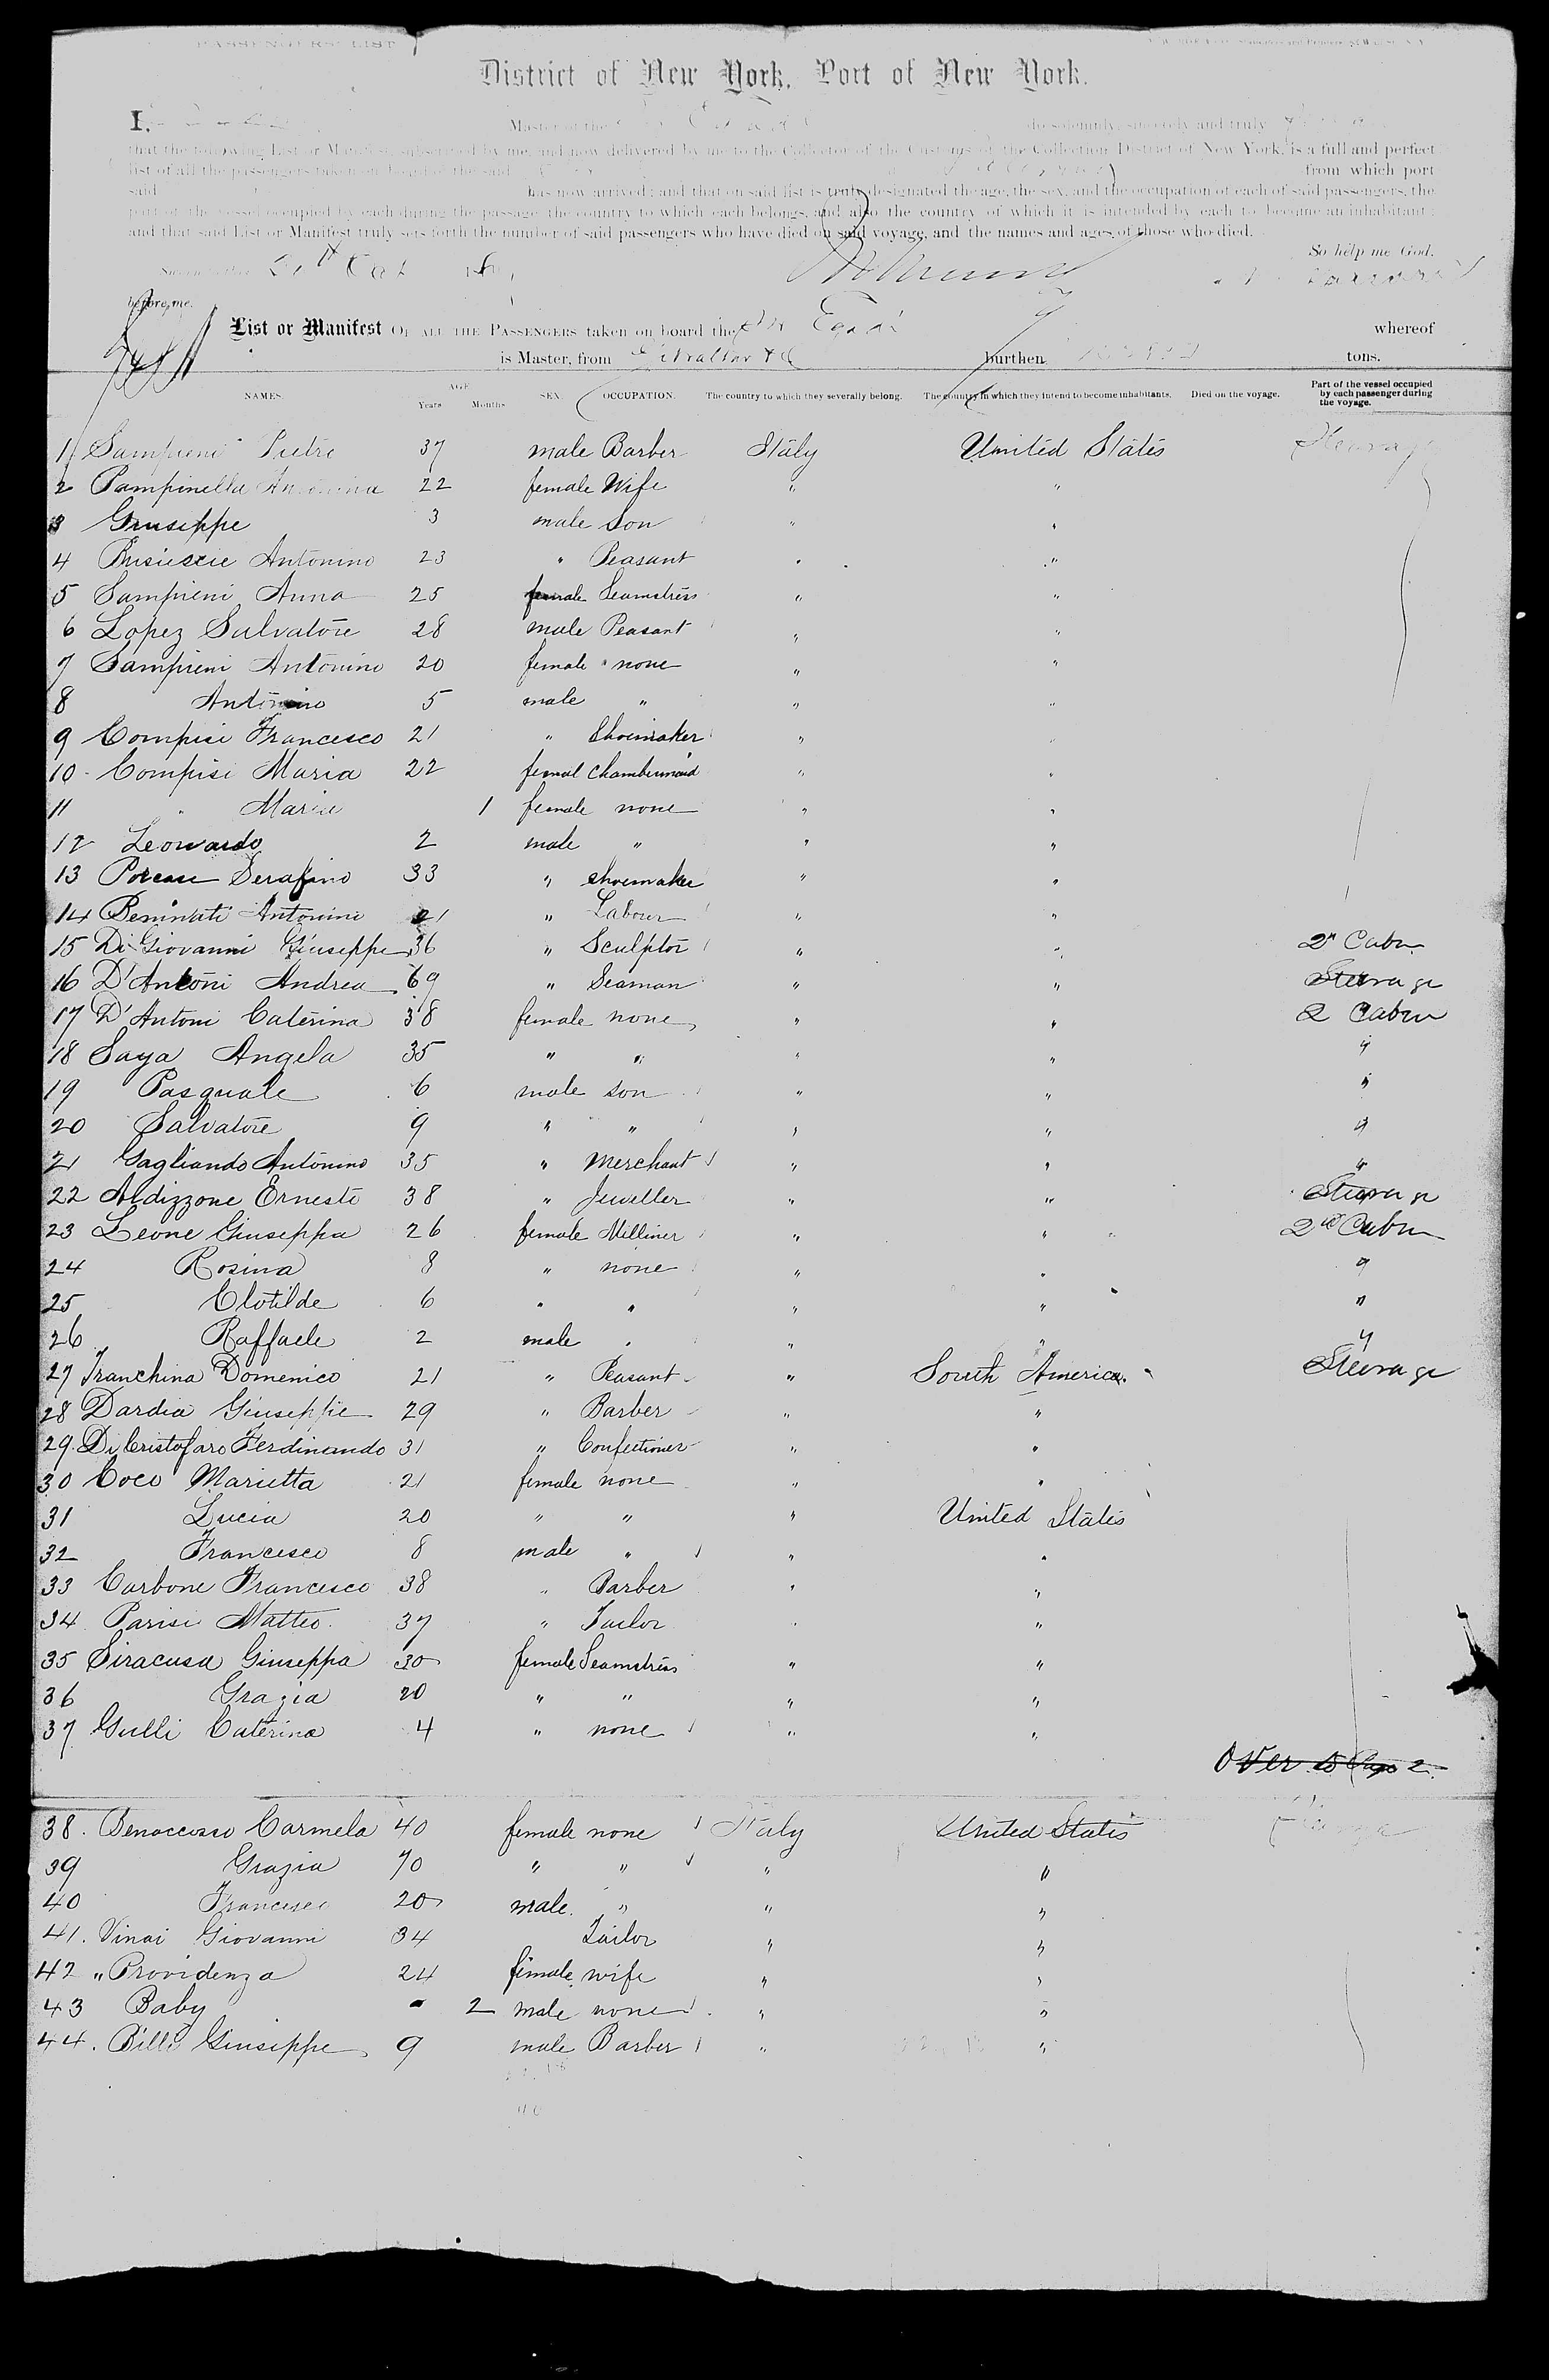 PASSENGERS LIST
District of New York, Port of New York.
I, Master of the do solemnly, sincerely and truly
that the following List or Manifest, subscribed by me, and now delivered by me to the Collector of the Customs of the Collection District of New York, is a full and perfect
list of all the passengers taken on board of the said from which port
said has now arrived; and that on said list is truly designated the age, the sex, and the occupation of each of said passengers, the
part of the vessel occupied by each during the passage, the country to which each belongs, and also the country of which it is intended by each to become an inhabitant;
and that said List or Manifest truly sets forth the number of said passengers who have died on said voyage, and the names and ages of those who died.
So help me God.
Sworn to this
before me.
List or Manifest OF ALL THE PASSENGERS taken on board the whereof
is Master, from Gibraltar burthen tons.
NAMES. AGE Years Months SEX. OCCUPATION. The country to which they severally belong. The country in which they intend to become inhabitants. Died on the voyage. Part of the vessel occupied by each passenger during the voyage.
1 Sampieni Pietro 37 male Barber Italy United States Steerage
2 Pampinella Antonina 22 female Wife " "
3 Giuseppe 3 male Son " "
4 Antonino 23 " Peasant " "
5 Sampieni Anna 25 female Seamstress " "
6 Lopez Salvatore 28 male Peasant " "
7 Sampieni Antonino 20 female none " "
8 Antonino 5 male " " "
9 Compisi Francesco 21 " Shoemaker " "
10 Compisi Maria 22 femal Chambermaid " "
11 " Maria 1 female none " "
12 Leonardo 2 male " " "
13 Serafino 33 " shoemaker " "
14 Beninati Antonino 21 " Labour " "
15 Di Giovanni Giuseppe 36 " Sculptor " " 2n Cabin
16 D'Antoni Andrea 69 " Seaman " " Steerage
17 D'Antoni Caterina 38 female none " " 2 Cabin
18 Saya Angela 35 " " " " "
19 Pasquale 6 male son " " "
20 Salvatore 9 " " " " "
21 Gagliando Antonino 35 " Merchant " " "
22 Aldizzone Ernesto 38 " Jeweller " " Steerage
23 Leone Giuseppa 26 female Milliner " " 2nd Cabin
24 Rosina 8 " none " " "
25 Clotilde 6 " " " " "
26 Raffaele 2 male " " " "
27 Franchina Domenico 21 " Peasant " South America Steerage
28 Dardia Giuseppe 29 " Barber " "
29. Di Cristofaro Ferdinando 31 " Confectioner " "
30 Coco Marietta 21 female none " "
31 Lucia 20 " " " United States
32 Francesco 8 male " " "
33 Carbone Francesco 38 " Barber " "
34 Parisi Matteo 37 " Tailor " "
35 Siracusa Giuseppa 30 female Seamstress " "
36 Grazia 20 " " " "
37 Gulli Caterina 4 " none " "
Over to Page 2.
38. Carmela 40 female none Italy United States Steerage
39 Grazia 70 " " " "
40 Francesco 20 male " " "
41. Vinai Giovanni 34 Tailor " "
42 " Providenza 24 female wife " "
43 Baby 2 male none " "
44. Billi Giuseppe 9 male Barber " "